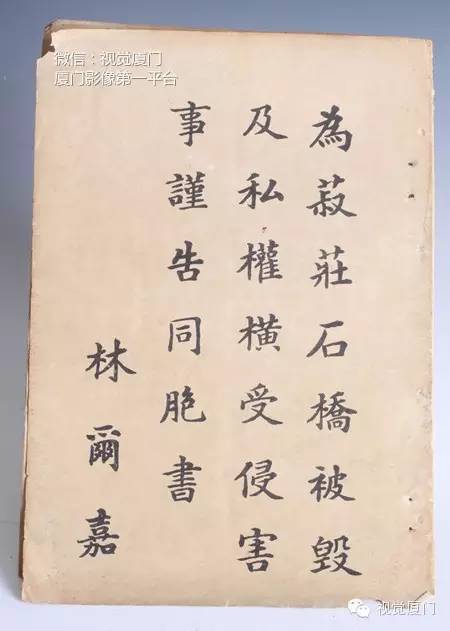 微信：视觉厦门
厦门影像第一平台
為菽莊石橋被毀
及私權横受侵害
事謹告同胞書
林爾嘉
视觉厦门